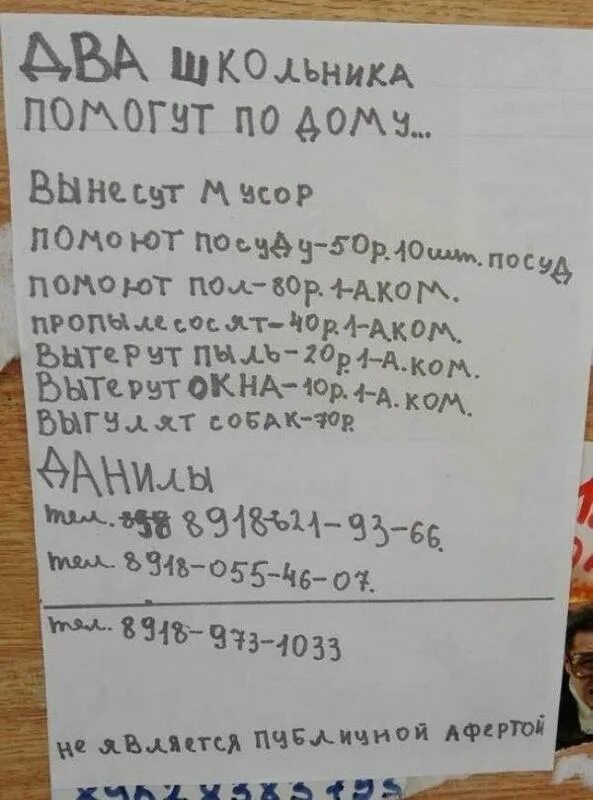 ДВА ШКОЛЬНИКА
ПОМОГУТ ПО ДОМУ...
ВЫНЕСУТ МУСОР
ПОМОЮТ ПОСУДУ-50р.10шт.ПОСУД
ПОМОЮТ ПОЛ-80р.1-А.КОМ.
ПРОПЫЛЕСОСЯТ-40р.1-А.КОМ.
ВЫТЕРУТ ПЫЛЬ-20р.1-А.КОМ.
ВЫТЕРУТ ОКНА-10р.1-А.КОМ.
ВЫГУЛЯТ СОБАК-70р.
ДАНИЛЫ
тел. 8918-621-93-66.
тел. 8918-055-46-07.
тел. 8918-973-1033
НЕ ЯВЛЯЕТСЯ ПУБЛИЧНОЙ АФЕРТОЙ